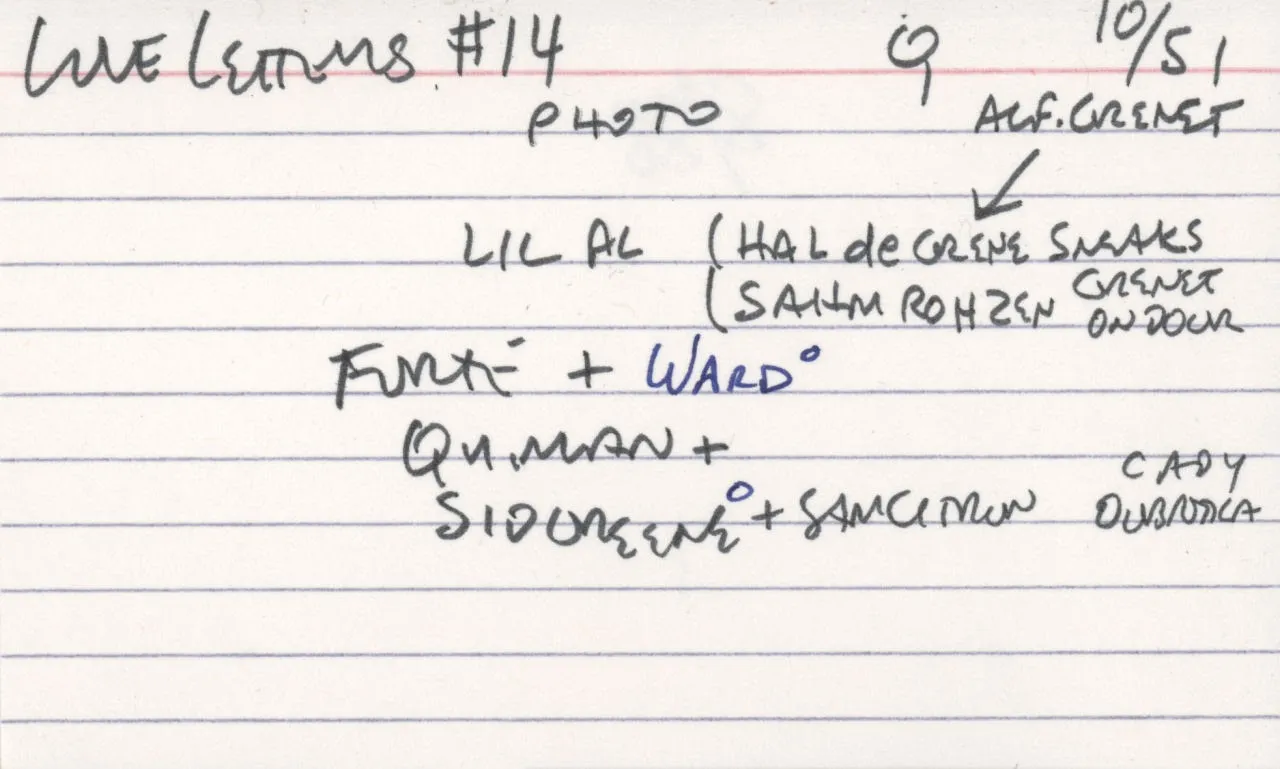 LOVE LETTERS #14 Q 10/51
PHOTO ALF. GRENET
LIL AL (HAL de GRENE SNEAKS
(SAHM ROHZEN GRENET
ON DOUR
FORTE + WARD°
QU.MAN +
CADY
SID GREENE° + SAM CITRON DUBROTICA